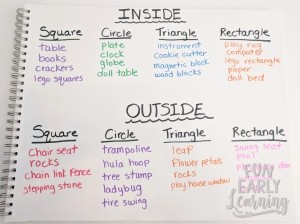 INSIDE
Square Circle Triangle Rectangle
table plate instrument play rug
books clock cookie cutter computer
crackers globe magnetic block lego rectangle
lego squares doll table wood blocks paper
doll bed
OUTSIDE
Square Circle Triangle Rectangle
Chair seat trampoline leaf Swing seat
rocks hula hoop flower petals pool
chain lint fence tree stump rocks
stepping stone ladybug play house window
tire swing
FUN
EARLY
Learning